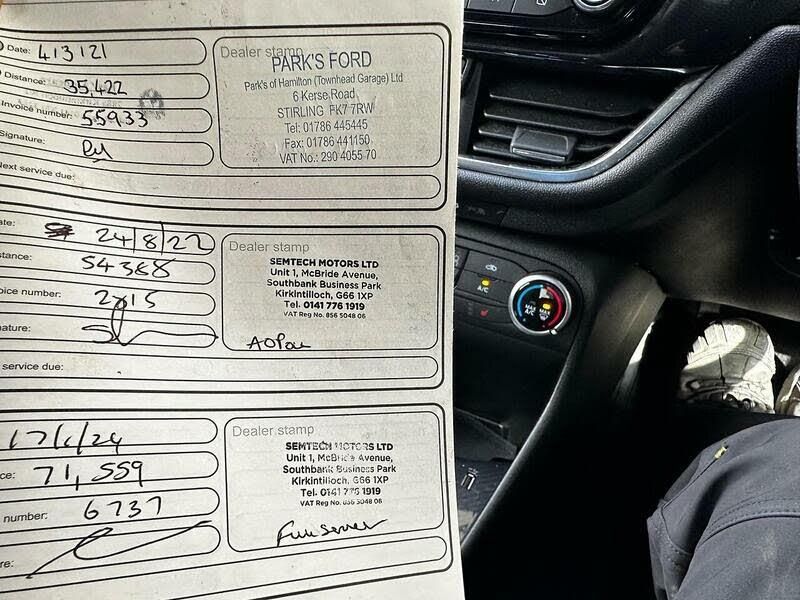 Date: 4/3/21
Distance: 35,422
Invoice number: 55933
Signature:
Next service due:
Dealer stamp
PARK'S FORD
Park's of Hamilton (Townhead Garage) Ltd
6 Kerse Road
STIRLING FK7 7RW
Tel: 01786 445445
Fax: 01786 441150
VAT No.: 290 4055 70
ate: 24/8/22
tance: 54388
oice number: 2815
nature:
service due:
Dealer stamp
SEMTECH MOTORS LTD
Unit 1, McBride Avenue,
Southbank Business Park
Kirkintilloch, G66 1XP
Tel. 0141 776 1919
VAT Reg No. 856 5048 06
17/1/24
ce: 71,559
number: 6737
re:
Dealer stamp
SEMTECH MOTORS LTD
Unit 1, McBride Avenue,
Southbank Business Park
Kirkintilloch, G66 1XP
Tel. 0141 776 1919
VAT Reg No. 856 5048 06
Full Service
A/C
MAX A/C
MAX